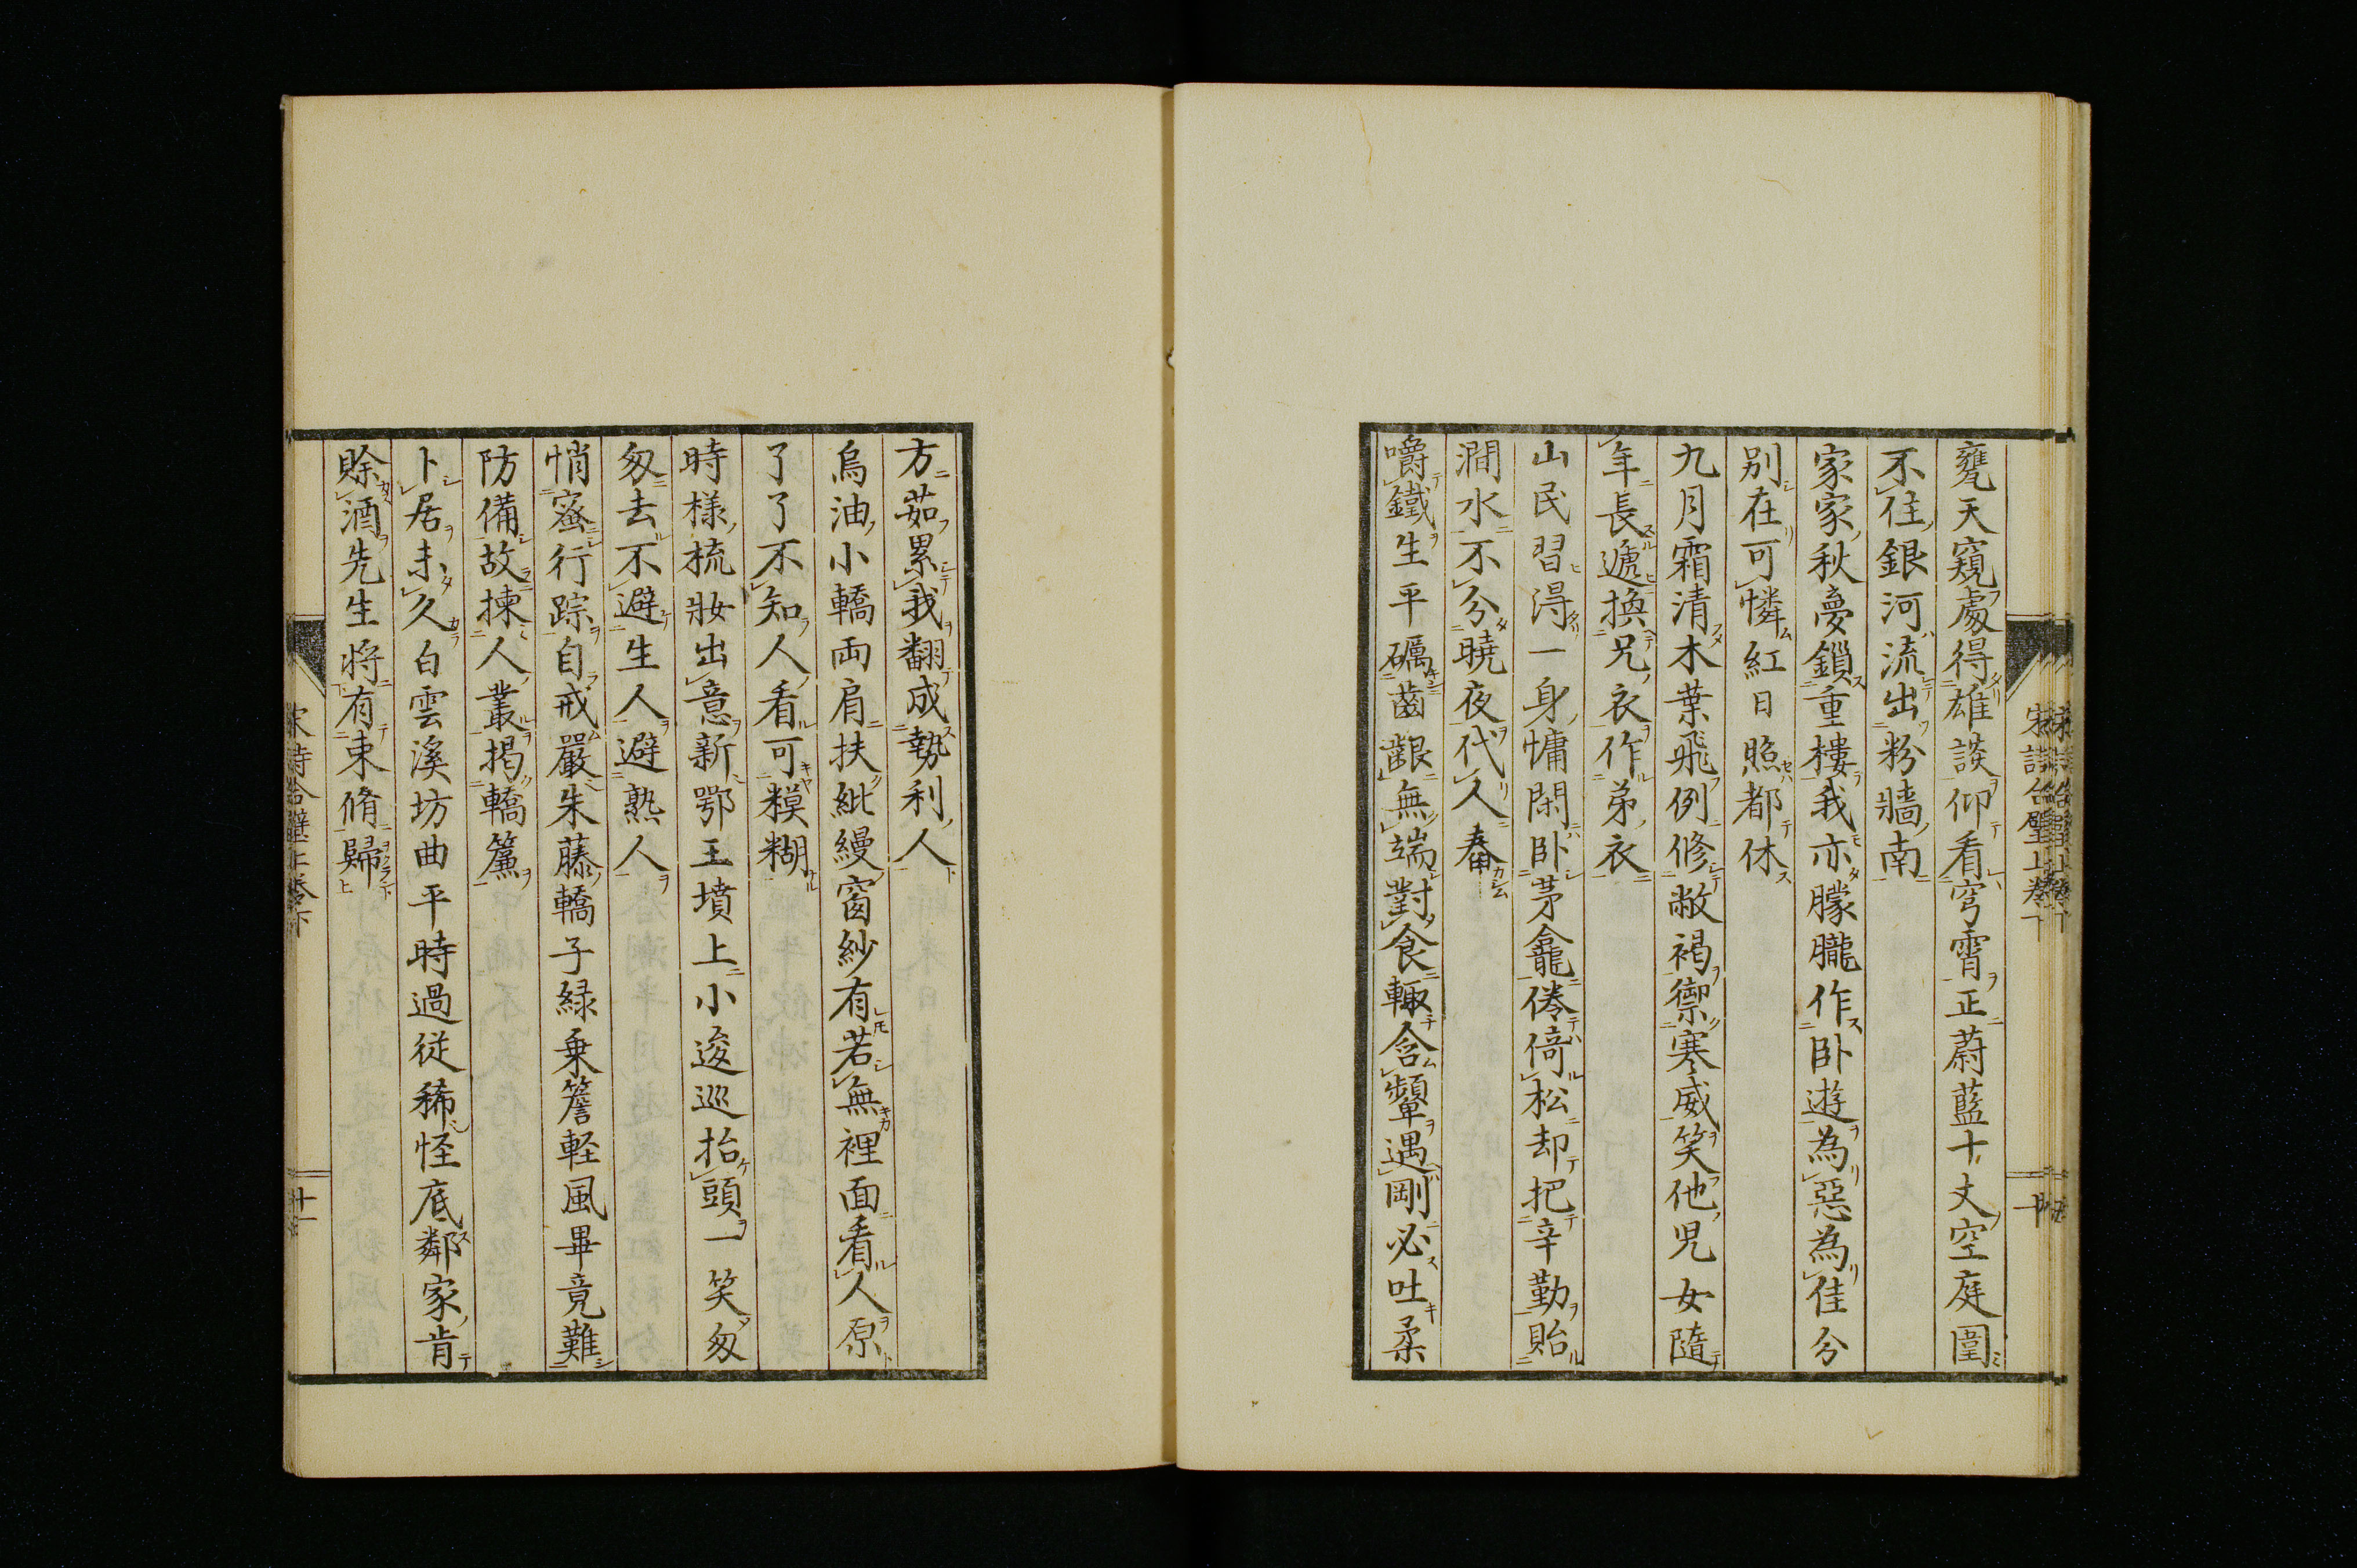 甕天窺處得雄談仰看穹霄正蔚藍十丈空庭圍
不住銀河流出粉牆南
家家秋夢鎖重樓我亦朦朧作卧遊為惡為佳分
別在可憐紅日照都休
九月霜清木葉飛例修敝褐禦寒威笑他兒女隨
年長遞換兄衣作弟衣
山民習得一身慵閑卧茅龕倦倚松却把辛勤貽
澗水不分曉夜代人舂
嚼鐵生平礪齒齦無端對食輙含顰遇剛必吐柔
宋詩合璧上巻下
十
方茹累我翻成勢利人
烏油小轎両肩扶紕縵窗紗有若無裡面看人原
了了不知人看可糢糊
時様梳妝出意新鄂王墳上小逡巡抬頭一笑匆
匆去不避生人避熟人
悄宻行踪自戒嚴朱藤轎子緑乗簷軽風畢竟難
防備故揀人叢掲轎簾
卜居未久白雲溪坊曲平時過従稀怪底鄰家肯
賖酒先生将有束脩歸
宋詩合璧上巻下
十一